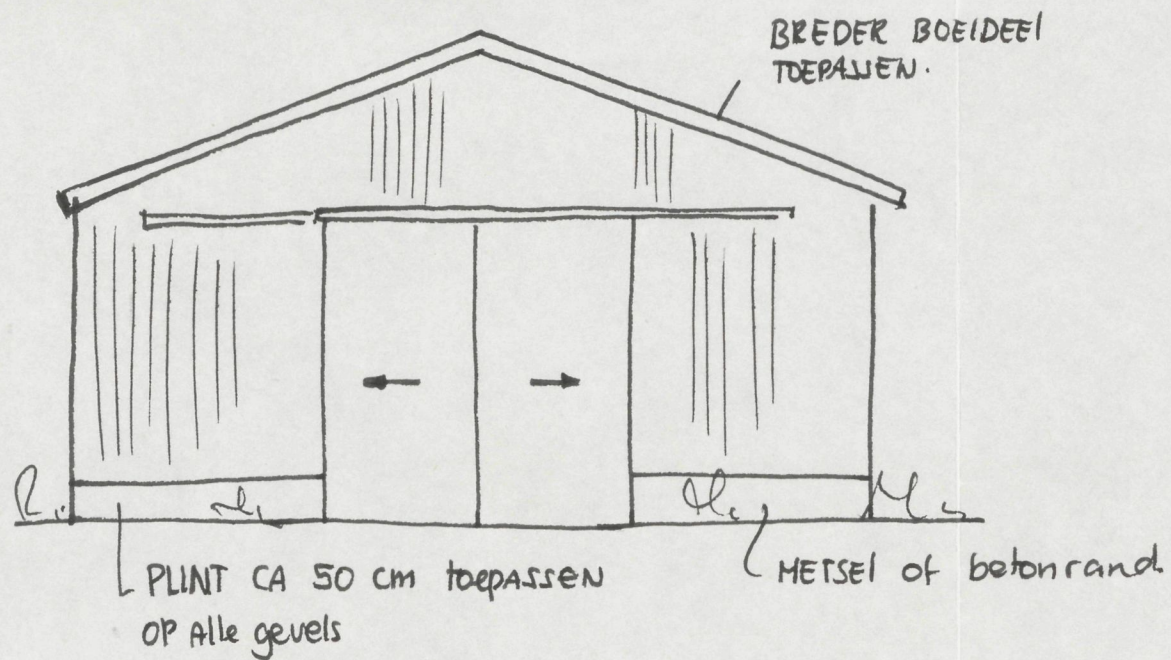 BREDER BOEIDEEl
TOEPASSEN.
PLINT CA 50 cm toepASSEN
OP Alle gevels
METSEl of betonrand.